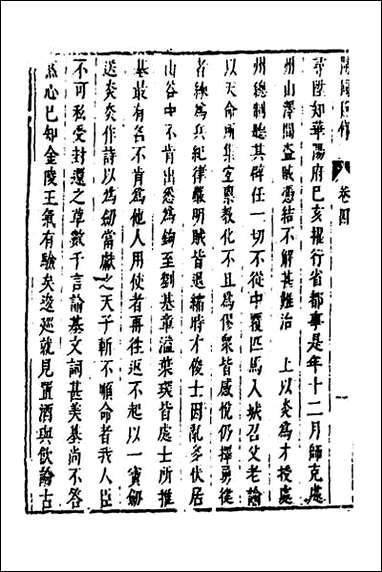 卷四
尋陞知華陽府己亥擢行省都事是年十二月師克處
州山澤間盜賊憑結不解甚難治　上以炎爲才授處
州總制聽其辟任一切不從中覆匹馬入城召父老諭
以天命所集宣寨教化不且爲僇衆皆感悅仍擇勇從
者練爲兵紀律嚴明賊皆退縮時才俊士因亂多伏居
山谷中不肯出悉爲鉤至劉基章溢葉琛皆處士所推
基最有名不肯爲他人用使者再往返不起以一寶劒
送炎炎作詩以爲劒當獻之天子斬不順命者我人臣
不可私受封還之草數千言諭基文詞甚美基尚不答
然心已知金陵王氣有驗矣逡廵就見置酒與飲論古